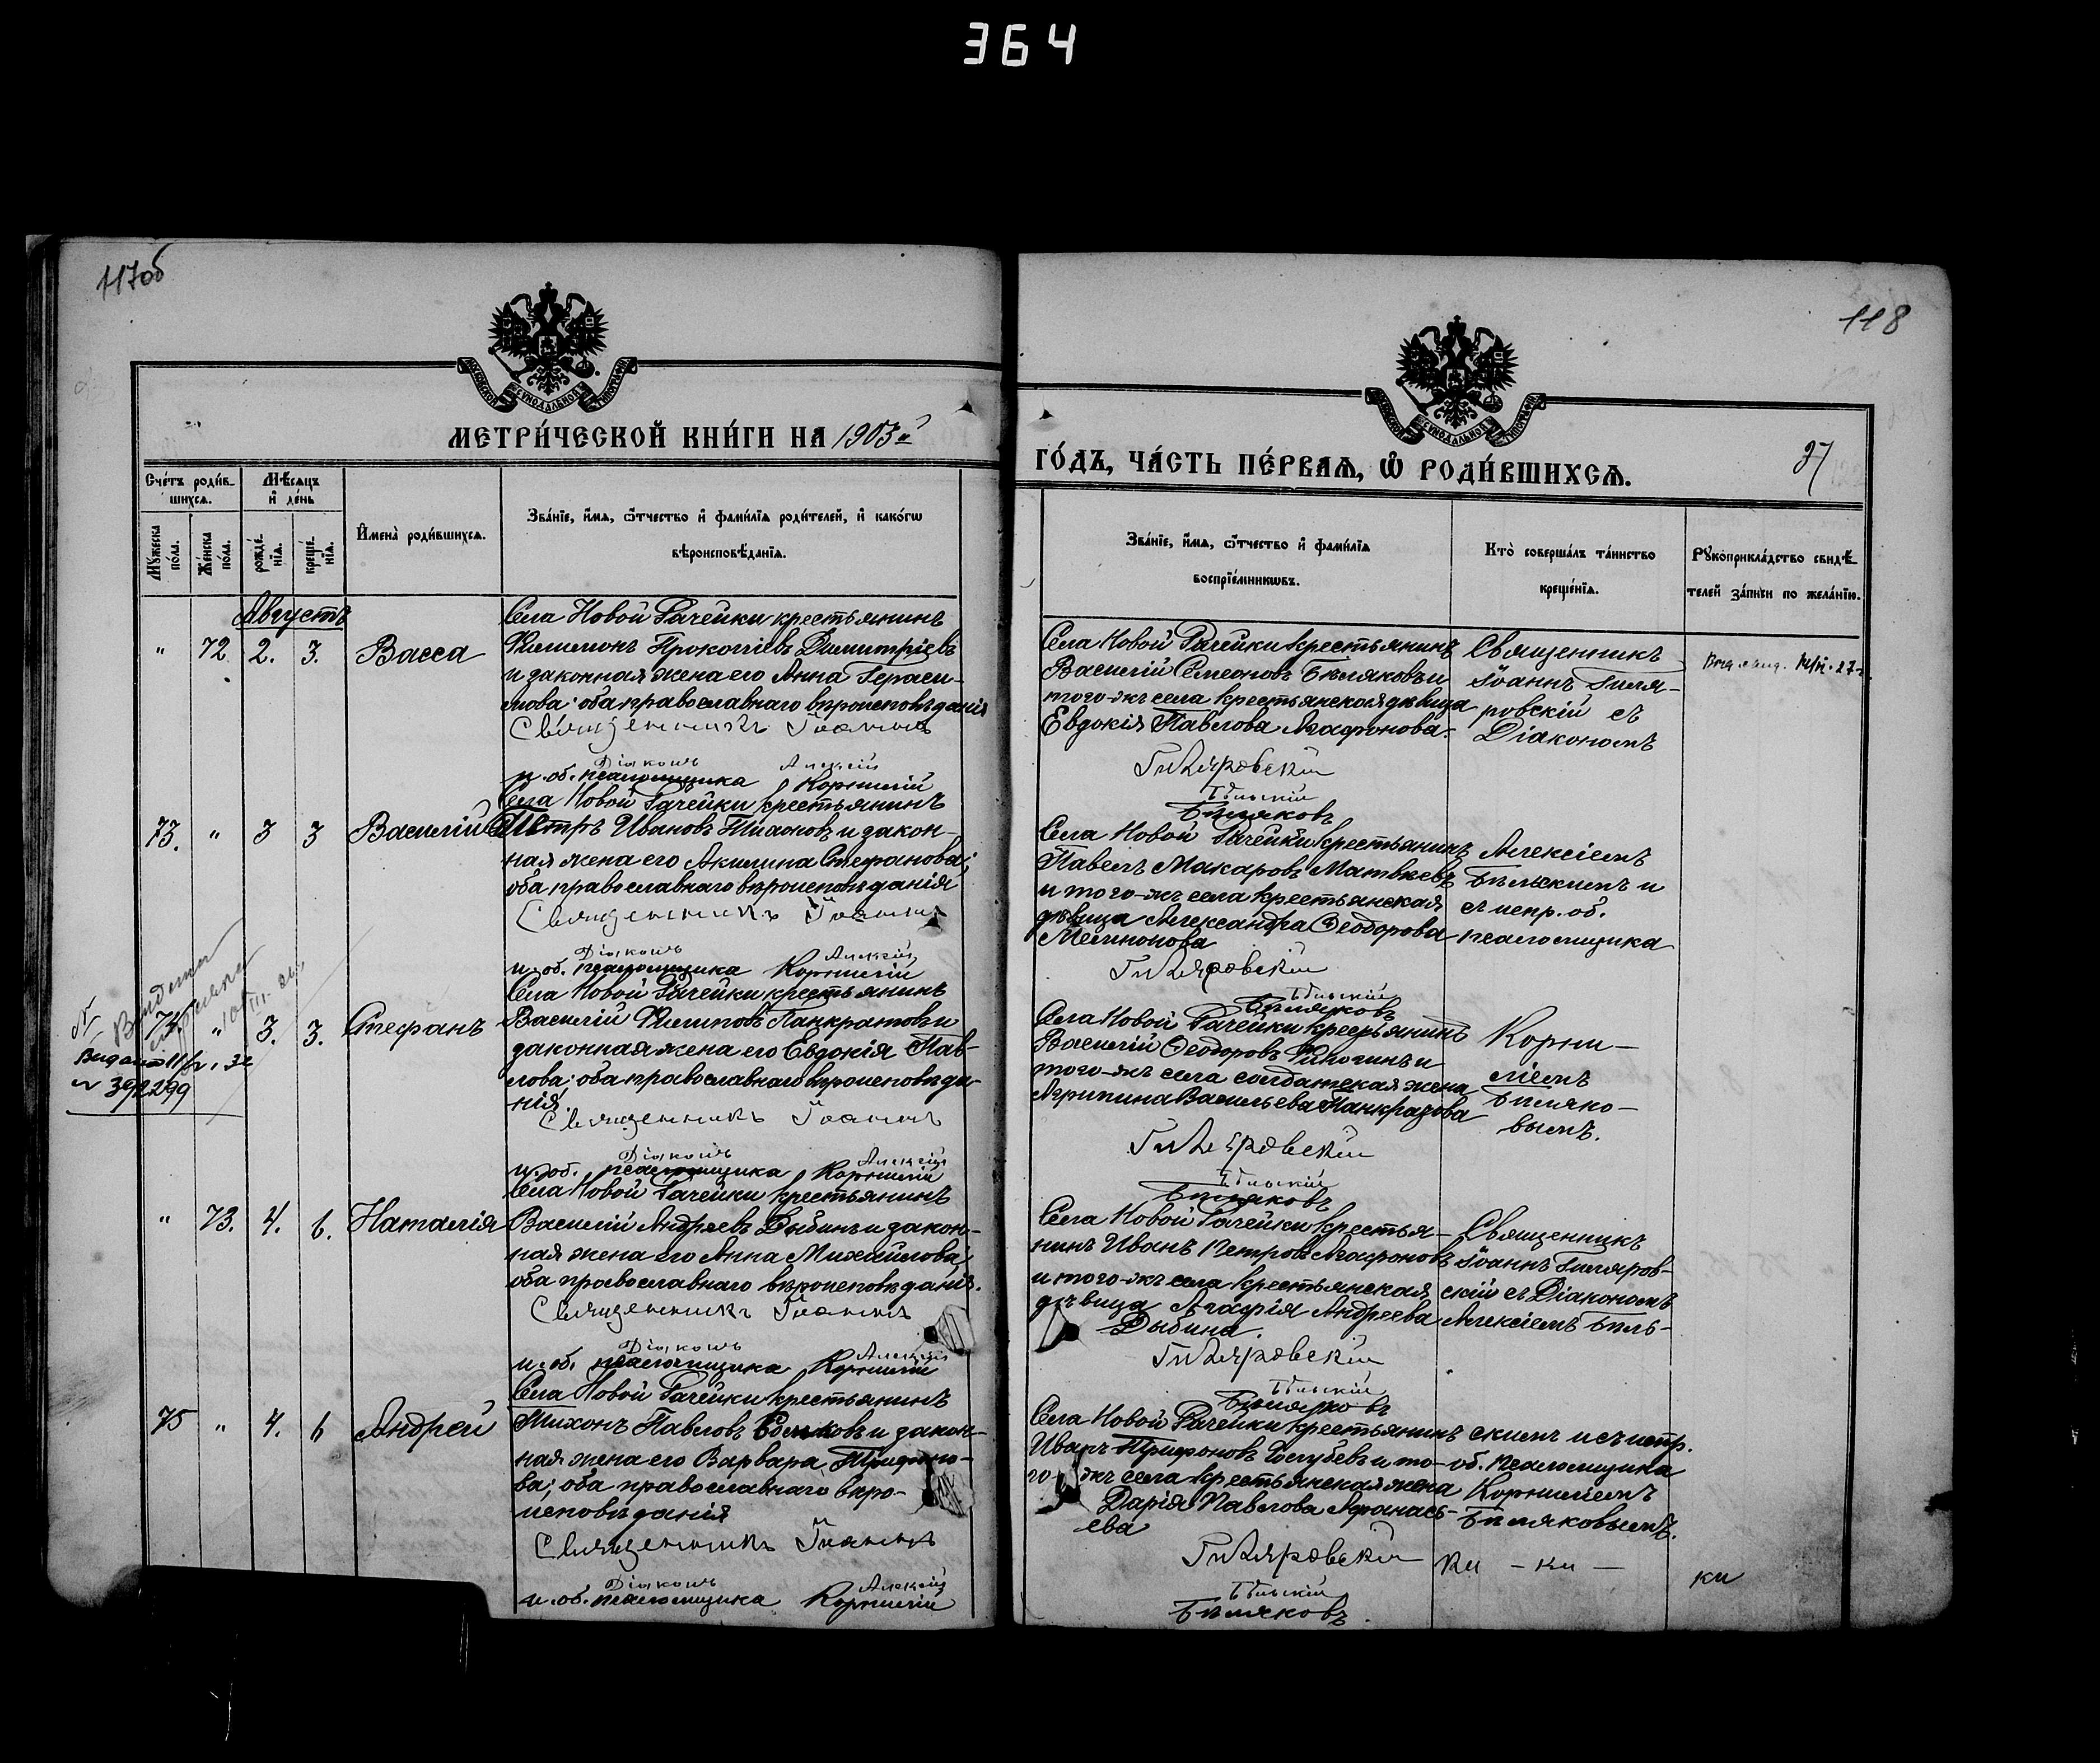 364
117об
118
37
МЕТРИ́ЧЕСКОЙ КНИ́ГИ НА 1903й
ГО́ДЪ, ЧА́СТЬ ПЕ́РВАѦ, Ѿ РОДИ́ВШИХСѦ.
Сче́тъ роди́в-
шихсѧ.
Мѣ́сѧцъ
и҆ де́нь
Мꙋ́жеска
по́ла.
Же́нска
по́ла.
рожде́-
нїѧ.
креще́-
нїѧ.
И҆мена̀ роди́вшихсѧ.
Зва́нїе, и҆́мѧ, ѻ҆́тчество и҆ фами́лїѧ роди́телей, и҆ како́гѡ
вѣроисповѣ́данїѧ.
Зва́нїе, и҆́мѧ, ѻ҆́тчество и҆ фами́лїѧ
воспрїе́мникѡвъ.
Кто̀ соверша́лъ та́инство
креще́нїѧ.
Рꙋкоприкла́дство свидѣ́-
телей за́писи по жела́нїю.
Августъ
" 72 2. 3. Васса
Села Новой Рачейки крестьянинъ
Филимонъ Прокопіевъ Димитріевъ
и законная жена его Анна Гераси-
мова; оба православнаго вѣроисповѣданія
Священникъ Іоаннъ
Діаконъ Алексій
и. об. псаломщика Корнилій
Села Новой Рачейки крестьянинъ
Василій Семеоновъ Бѣляковъ и
того-жъ села крестьянская дѣвица
Евдокія Павлова Агафонова.
Гиляровскій
Бѣльскій
Бѣляковъ
Священникъ
Іоаннъ Гиля-
ровскій съ
Діакономъ
73. " 3 3 Василій
Села Новой Рачейки крестьянинъ
Петръ Ивановъ Тихоновъ и закон-
ная жена его Акилина Стефанова;
оба православнаго вѣроисповѣданія
Священникъ Іоаннъ
Діаконъ Алексій
и. об. псаломщика Корнилій
Села Новой Рачейки крестьянинъ
Павелъ Макаровъ Матвѣевъ
и того-жъ села крестьянская
дѣвица Александра Ѳеодорова
Гиляровскій
Бѣльскій
Бѣляковъ
Алексіемъ
Бѣльскимъ и
съ испр. об.
псаломщика
74. " 3. 3. Стефанъ
№ 392299
Села Новой Рачейки крестьянинъ
Василій Филиповъ Панкратовъ и
законная жена его Евдокія Пав-
лова; оба православнаго вѣроисповѣда-
нія.
Священникъ Іоаннъ
Діаконъ Алексій
и. об. псаломщика Корнилій
Села Новой Рачейки крестьянинъ
Василій Ѳеодоровъ и
того-жъ села солдатская жена
Агрипина Васильева Панкратова
Гиляровскій
Бѣльскій
Бѣляковъ
Корни-
ліемъ
Бѣляко-
вымъ.
" 73. 4. 6. Наталія
Села Новой Рачейки крестьянинъ
Василій Андреевъ Дыбинъ и закон-
ная жена его Анна Михайлова;
оба православнаго вѣроисповѣданія.
Священникъ Іоаннъ
Діаконъ Алексій
и. об. псаломщика Корнилій
Села Новой Рачейки крестья-
нинъ Иванъ Петровъ Агафоновъ
и того-жъ села крестьянская
дѣвица Агафія Андреева
Дыбина.
Гиляровскій
Бѣльскій
Бѣляковъ
Священникъ
Іоаннъ Гиляров-
скій съ Діакономъ
Алексіемъ Бѣль-
75 " 4. 6 Андрей
Села Новой Рачейки крестьянинъ
Тихонъ Павловъ и закон-
ная жена его Варвара Трифоно-
ва; оба православнаго вѣро-
исповѣданія
Священникъ Іоаннъ
Діаконъ Алексій
и. об. псаломщика Корнилій
Села Новой Рачейки крестьянинъ
Иванъ Трифоновъ Голубевъ и то-
го-жъ села крестьянская жена
Дарія Павлова Афанась-
ева
Гиляровскій
Бѣльскій
Бѣляковъ.
скимъ и съ испр.
об. псаломщика
Корниліемъ
Бѣляковымъ.